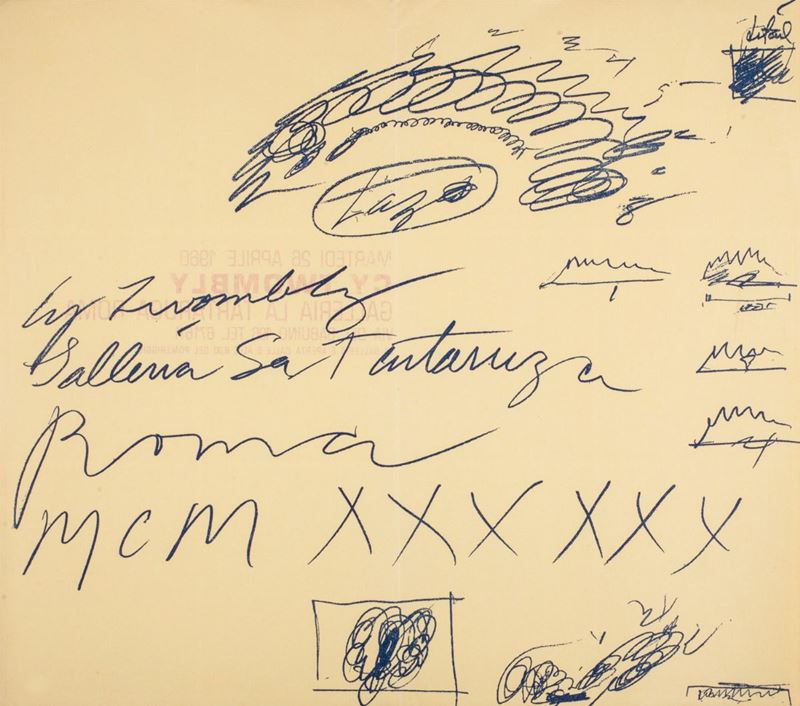 MARTEDI 26 APRILE 1960
CY TWOMBLY
GALLERIA LA TARTARUGA ROMA
Cy Twombly
Galleria La Tartaruga
Roma
MCM XXX XXX